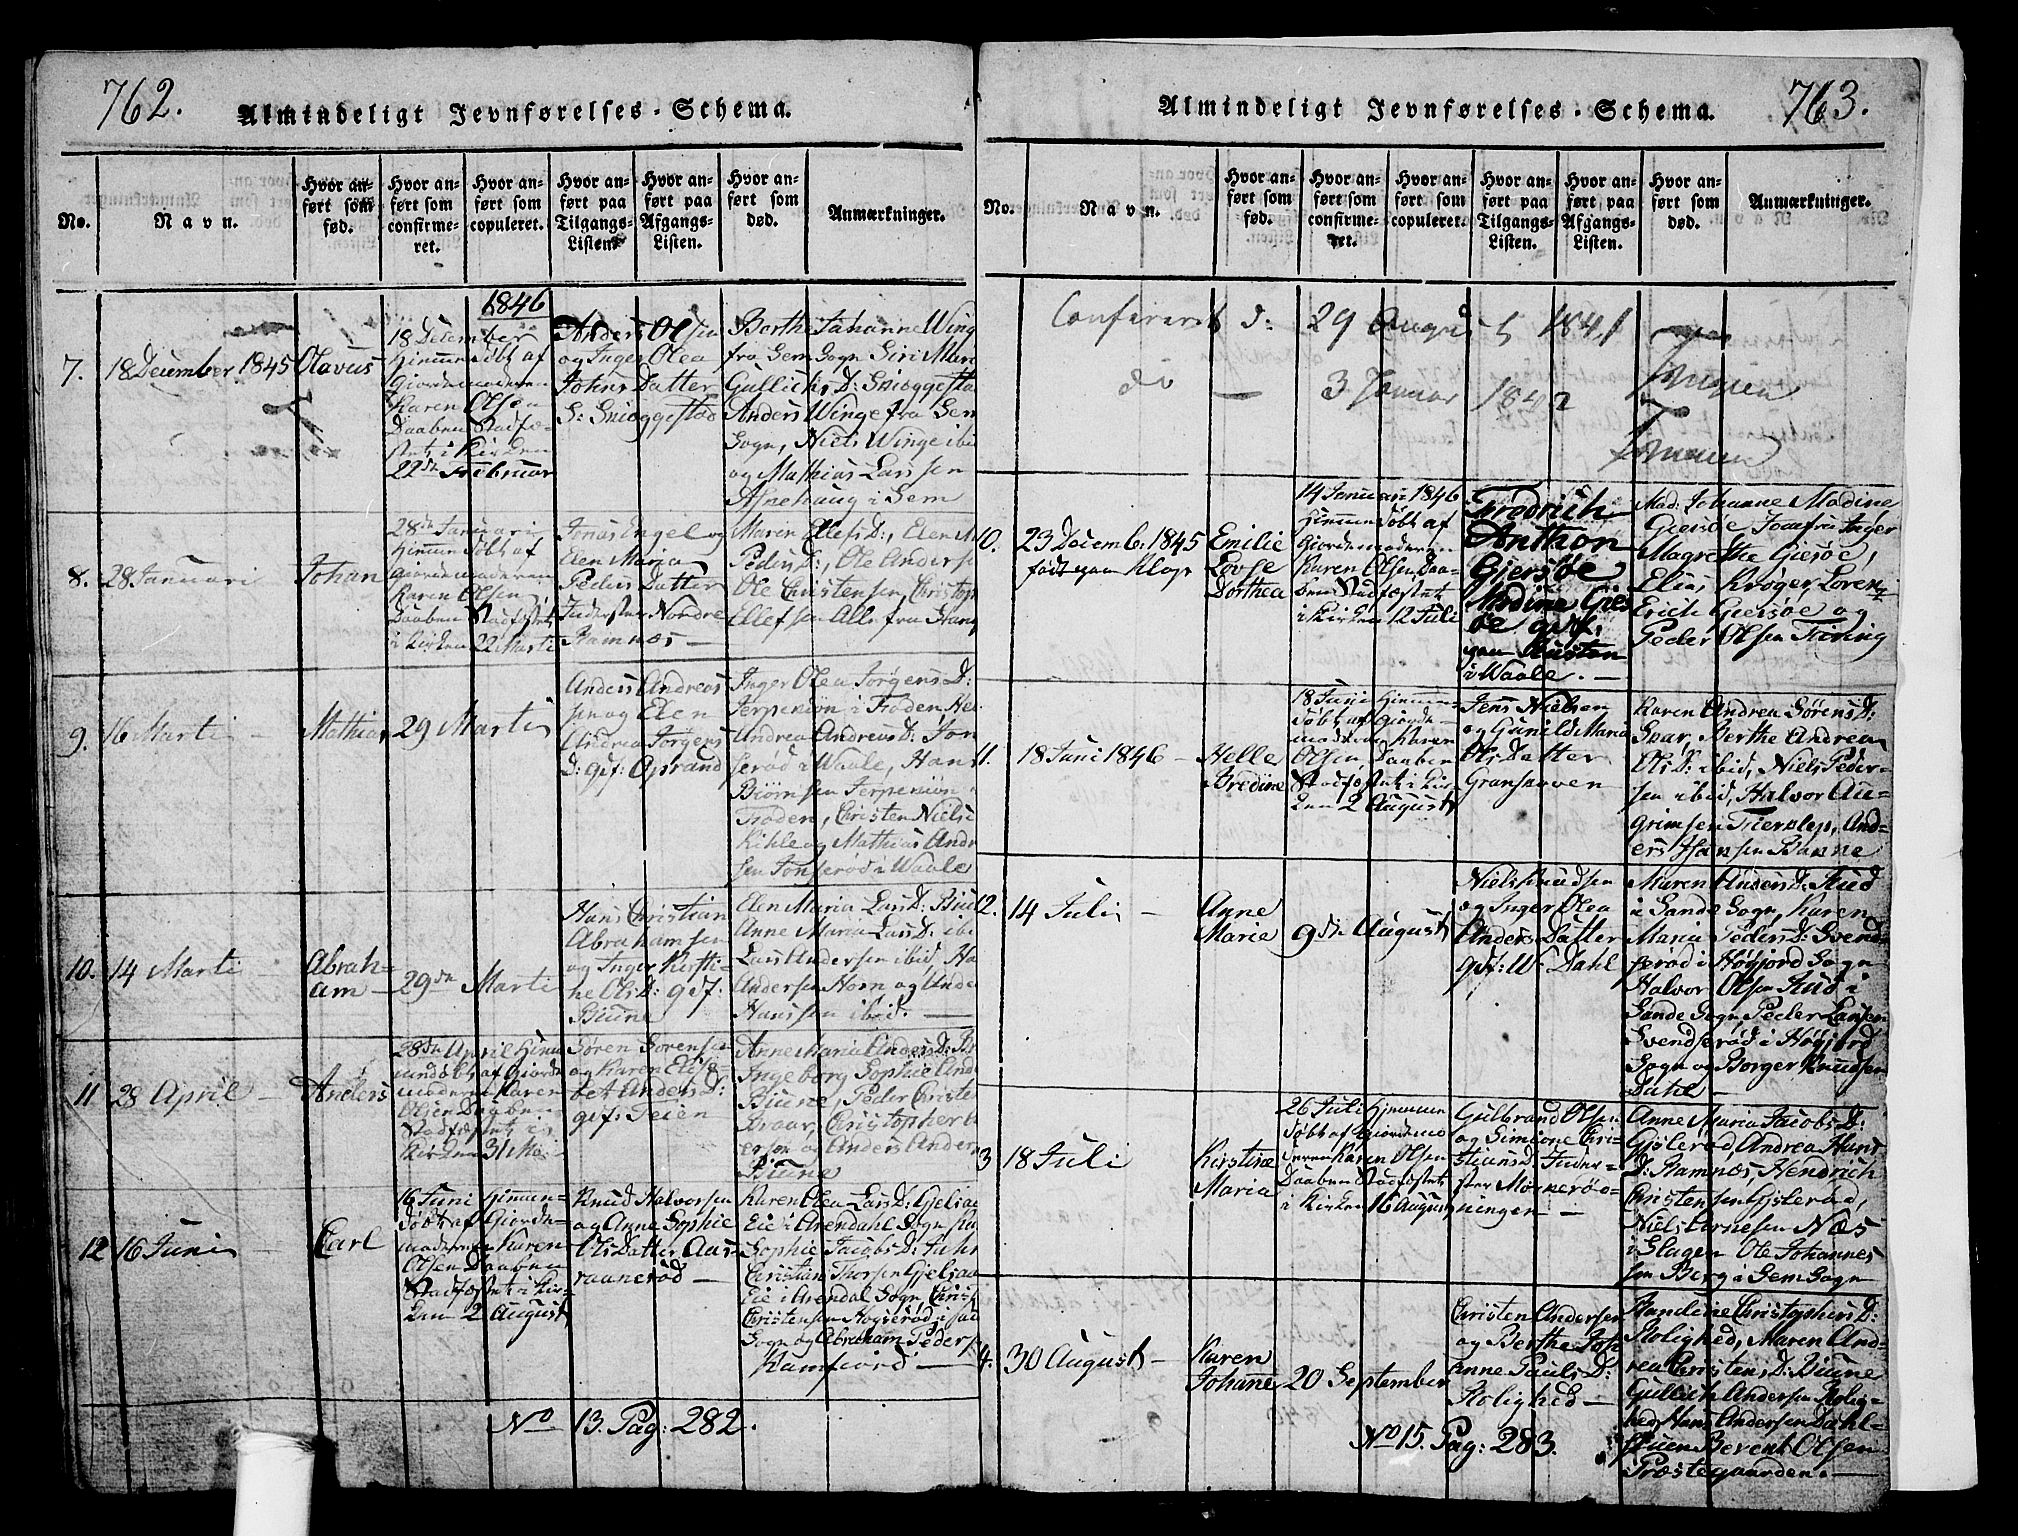 762.
Almindeligt Jevnførelses-Schema.
No.
Navn.
Hvor an-
ført som
fød.
Hvor an-
ført som
confirme-
ret.
Hvor an-
ført som
copuleret.
Hvor an-
ført paa
Tilgangs-
Listen.
Hvor an-
ført paa
Afgangs-
Listen.
Hvor an-
ført som
død.
Anmærkninger.
1846
7.
18 December 1845
Olavus
18 December
Hiemmedøbt af
Giordemoderen
Karen Olsen
Daaben Stadfæ-
stet i Kirken
22de Februar
Anders Olsen
og Inger Olea
Johns Datter
S: Snioggestad
Berthe Johanne Wing
fra Sem Sogn Siri Mari
Gullichs D: Snioggestad
Anders Winge fra Sem
Sogn, Niels Winge ibi
og Mathias Larssen
Asnehaug i Sem
8.
28 Januari
Johan
28de Januari
Hiemmedøbt af
Giordemoderen
Karen Olsen
Daaben Stadfæstet
i Kirken 22 Marti
Jonas Engel og
Elen Maria
Peders Datter
Inderster Nordre
Ramnæs
Maren Ellefs D:, Elen M
Peders D:, Ole Anderse
Ole Christensen, Christop
Ellefsen Alle fra Hang
9.
16 Marti
Mathias
29 Marti
Anders Andreas
sen og Elen
Andrea Jørgens
D: gif: Aprand
Inger Olea Jørgens D:
Jerpekiøn i Froden He
Andrea Andreas D: Jon
serød i Waale, Hans
Biørnsen Jerpekiøn i
Froden, Christen Niels
Kihle og Mathias Andr
sen Jonserød i Waale
10.
14 Marti
Abrah-
am
29de Marti
Hans Christian
Abrahamsen
og Inger Kirsti-
ne Ols D: gif:
Biune
Elen Maria Lars D: Biu
Anne Maria Lars D: ibi
Lars Andersen ibid, Ha
Andersen Horn og Ande
Hanssen ibid.
11
28 April
Anders
28de April Hiem
medøbt af Giorde
moderen Karen
Olsen Daaben
Stadfæstet i
Kirken 31 Mai
Søren Sørensen
og Karen Elisa-
bet Anders D:
gif: Feien
Anne Maria Anders D: B
Ingeborg Sophie Ande
Biune, Peder Christe
Braar, Christopher
ersen og Anders Ander
Biune
12
16 Juni
Carl
16 Juni Hiemme-
døbt af Giorde-
moderen Karen
Olsen Daaben
Stadfæstet i Kir-
ken 2 August
Knud Halvorsen
og Anne Sophie
Ols Datter Aas-
raanerød
Karen Olea Lars D: Gjelsaa
Eie i Arendahl Sogn
Sophie Jacobs D:
Christian Thorsen Gjelsaa
Eie i Arendal Sogn Christ
Christensen Høyserød i
Sogn og Abraham Peders
Kamfiord
No 13. Pag: 282.
763.
Almindeligt Jevnførelses-Schema.
No.
Navn.
Hvor an-
ført som
fød.
Hvor an-
ført som
confirme-
ret.
Hvor an-
ført som
copuleret.
Hvor an-
ført paa
Tilgangs-
Listen.
Hvor an-
ført paa
Afgangs-
Listen.
Hvor an-
ført som
død.
Anmærkninger.
Confereret d: 29 August 1841
do — 3 Januar 1842
10.
23 Decemb: 1845
født paa Klop
Emilie
Lovse
Dorthea
14 Januari 1846
Hiemmedøbt af
Giordemoderen
Karen Olsen, Daa-
ben Stadfæstet
i Kirken 12 Juli
Frødrich
Anthon
Giersøe
Madine Gier
søe gif:
paa Rustan
i Waale.
Mad: Johanne Madine
Giersøe Jomfru Inger
Magrethe Giersøe,
Elias Krøger, Loren
Erich Giersøe og
Peder Olsen Tvving
11.
18 Juni 1846
Helle
Bredine
18 Juni Hiemme-
døbt af Giorde-
moderen Karen
Olsen, Daaben
Stadfæstet i Kir-
ken 2 August
Jens Nielsen
og Gunild Maria
Ols Datter
Granshoven
Karen Andrea Sørens D:
Spar, Berthe Andrea
Ols D: ibid, Niels Peder-
sen ibid, Halvor An-
grimsen Fierslep, And-
ers Hansen Banne
12.
14 Juli
Anne
Marie
9de August
Niels Knudsen
og Inger Olea
Anders Datter
gif: W: Dahl
Maren Anders D: Rud
i Sande Sogn, Karen
Maria Peders D: Svend-
serød i Høyjord Sogn
Halvor Olsen Rud i
Sande Sogn Peder Larsen
Svendserød i Høyjord
Sogn og Borger Knudsen
Dahl
3
18 Juli
Kirstine
Maria
26 Juli Hjemme
døbt af Giordemo
deren Karen Olsen
Daaben Stadfæstet
i Kirken 16 August
Gulbrand Olsen
og Simione Chri-
stians D: Inder-
ster Mørkerød-
ningen
Anne Maria Jacobs D:
Gislerød, Andrea Hans
D: Ramnæs, Hendrich
Christensen Gislerød,
Niels Arnesen Næs
i Slagen Ole Johannes
sen Berg i Sem Sogn
4.
30 August
Karen
Johanne
20 September
Christen Andersen
og Berthe Jo-
anne Pauls D:
Rolighed
Handine Christophers D:
Rolighed, Maren And-
rea Christens D: Biune
Gullich Andersen Rolig-
hed, Hans Andersen Dahl-
stuen Bevent Olsen
Præstegaarden.
No 15. Pag: 283.